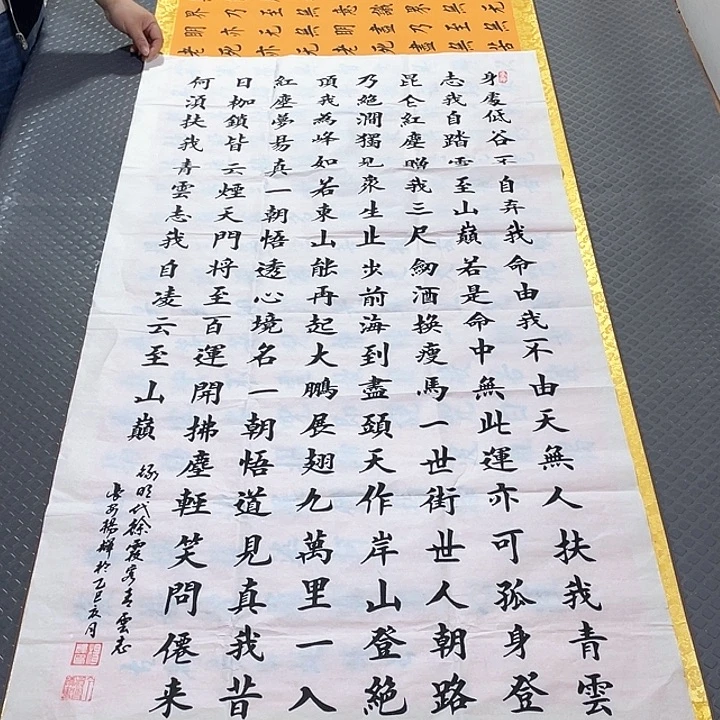 身處低谷不自弃我命由我不由天無人扶我青雲
志我自踏雪至山巔若是命中無此運亦可孤身登
昆仑紅塵贈我三尺劍酒換瘦馬一世街世人朝路
乃絕澗獨見眾生止步前海到盡頭天作岸山登絕
頂我為峰如若東山能再起大鵬展翅九萬里一入
紅塵夢易真一朝悟透心境名一朝悟道見真我昔
日枷鎖皆云煙天門將至百運開拂塵輕笑問僊來
何須扶我青雲志我自凌云至山巔
錄明代徐霞客青雲志
長安楊輝於乙巳夏月